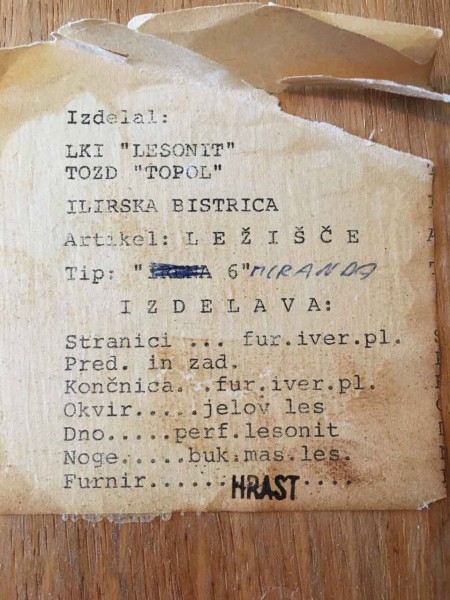 Izdelal:
LKI "LESONIT"
TOZD "TOPOL"
ILIRSKA BISTRICA
Artikel: L E Ž I Š Č E
Tip: " 6" MIRANDA
I Z D E L A V A:
Stranici ... fur.iver.pl.
Pred. in zad.
Končnica...fur.iver.pl.
Okvir.....jelov les
Dno.....perf.lesonit
Noge.....buk.mas.les.
Furnir.......HRAST....